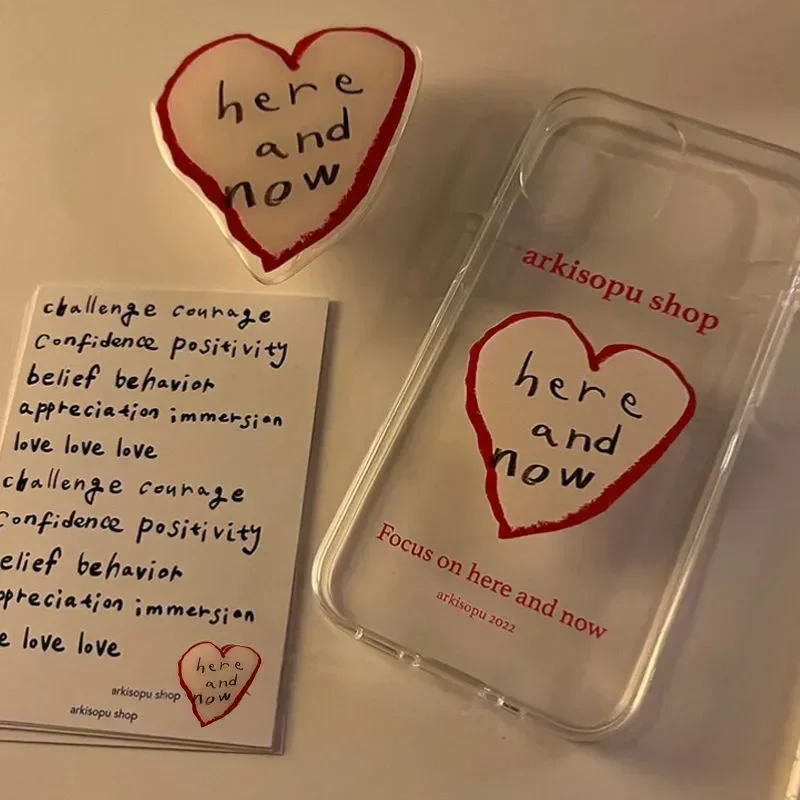 here
and
now
arkisopu shop
here
and
now
Focus on here and now
arkisopu 2022
challenge courage
confidence positivity
belief behavior
appreciation immersion
love love love
challenge courage
confidence positivity
elief behavior
ppreciation immersion
e love love
here
and
now
arkisopu shop
arkisopu shop